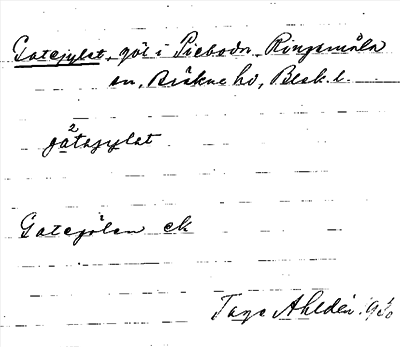 Gatejylet, göl i Siebodr Ringamåla
sn, Bräkne hd, Blek. l.
gåtajylet
Gategölen ek
Tage Ahldén 1930